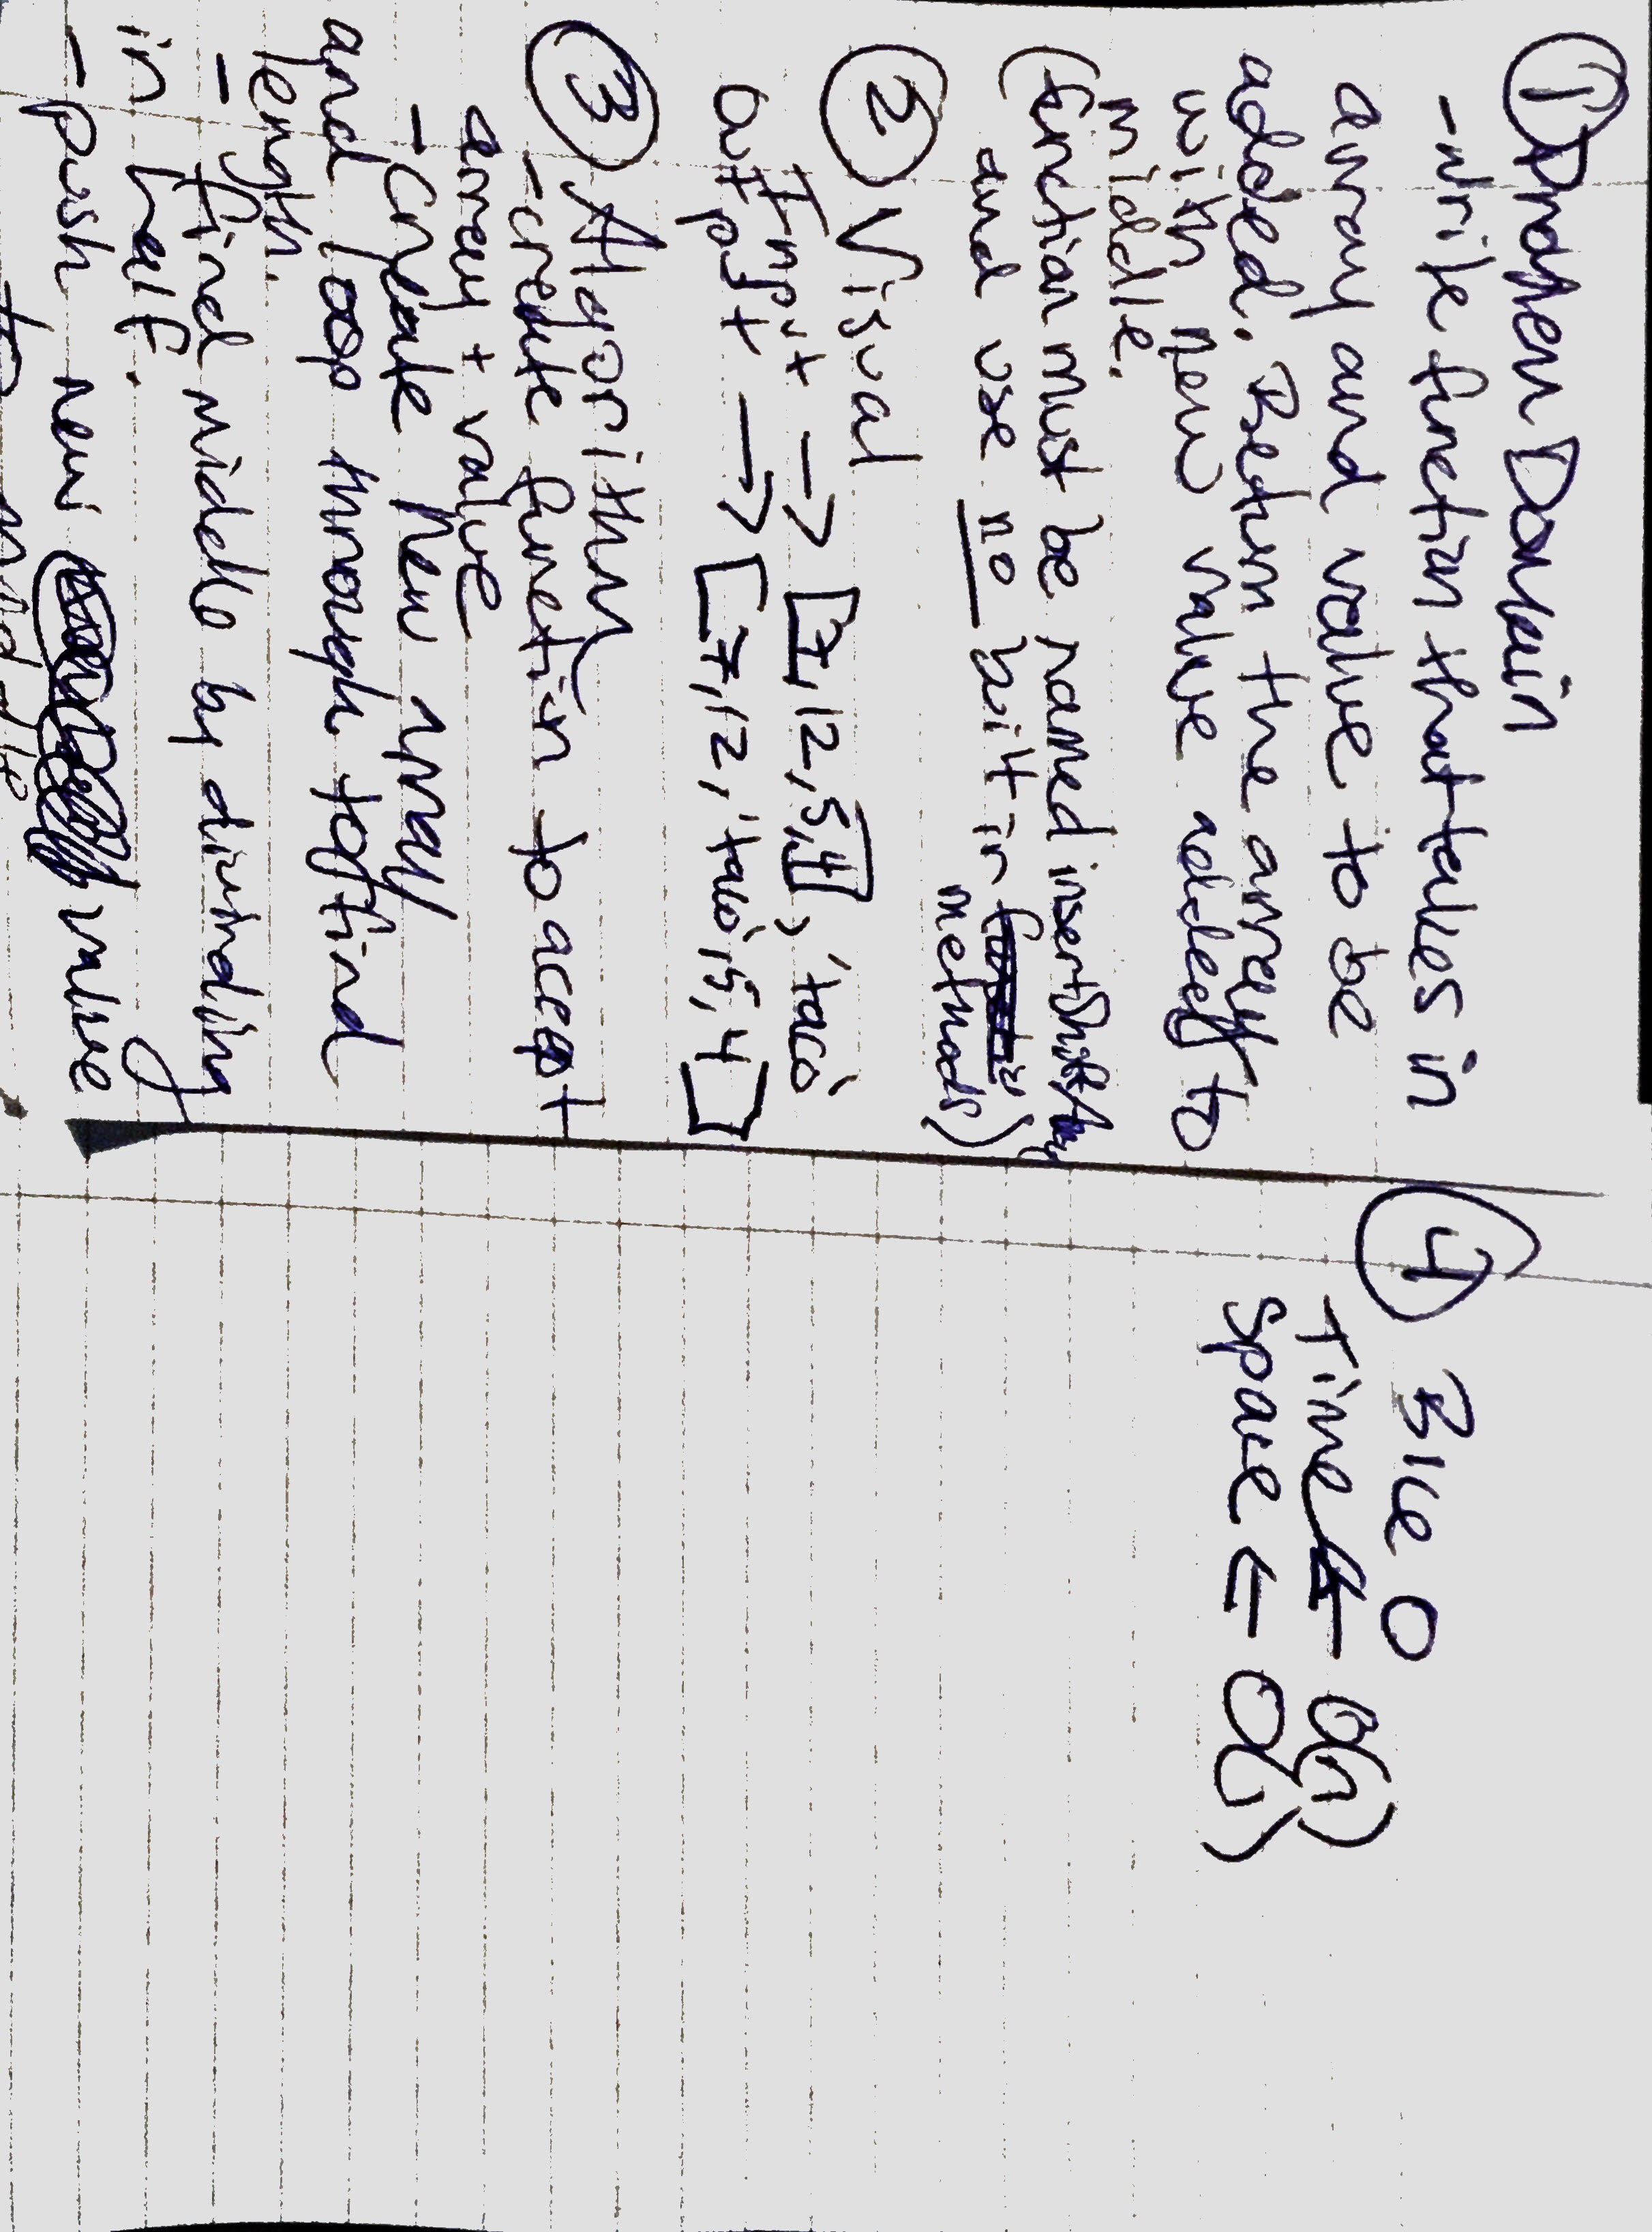 ① Problem Domain
- write function that takes in
array and value to be
added. Return the array
with new value added to
middle.
(function must be named insertShiftArray
and use no built in
methods)
② Visual
Input → [7,12,5,4], 'taco'
output → [7,12,'taco',5,4]
③ Algorithm
- create function to accept
array + value
- Create new array
and loop through to find
length.
- find middle by dividing
in half.
- push new value
to middle
④ BIG O
Time ← O(n)
Space ← O( )